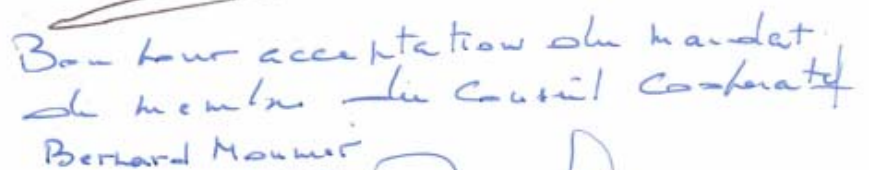 Bon pour acceptation du mandat
de membre du Conseil Coopératif
Bernard Mounier